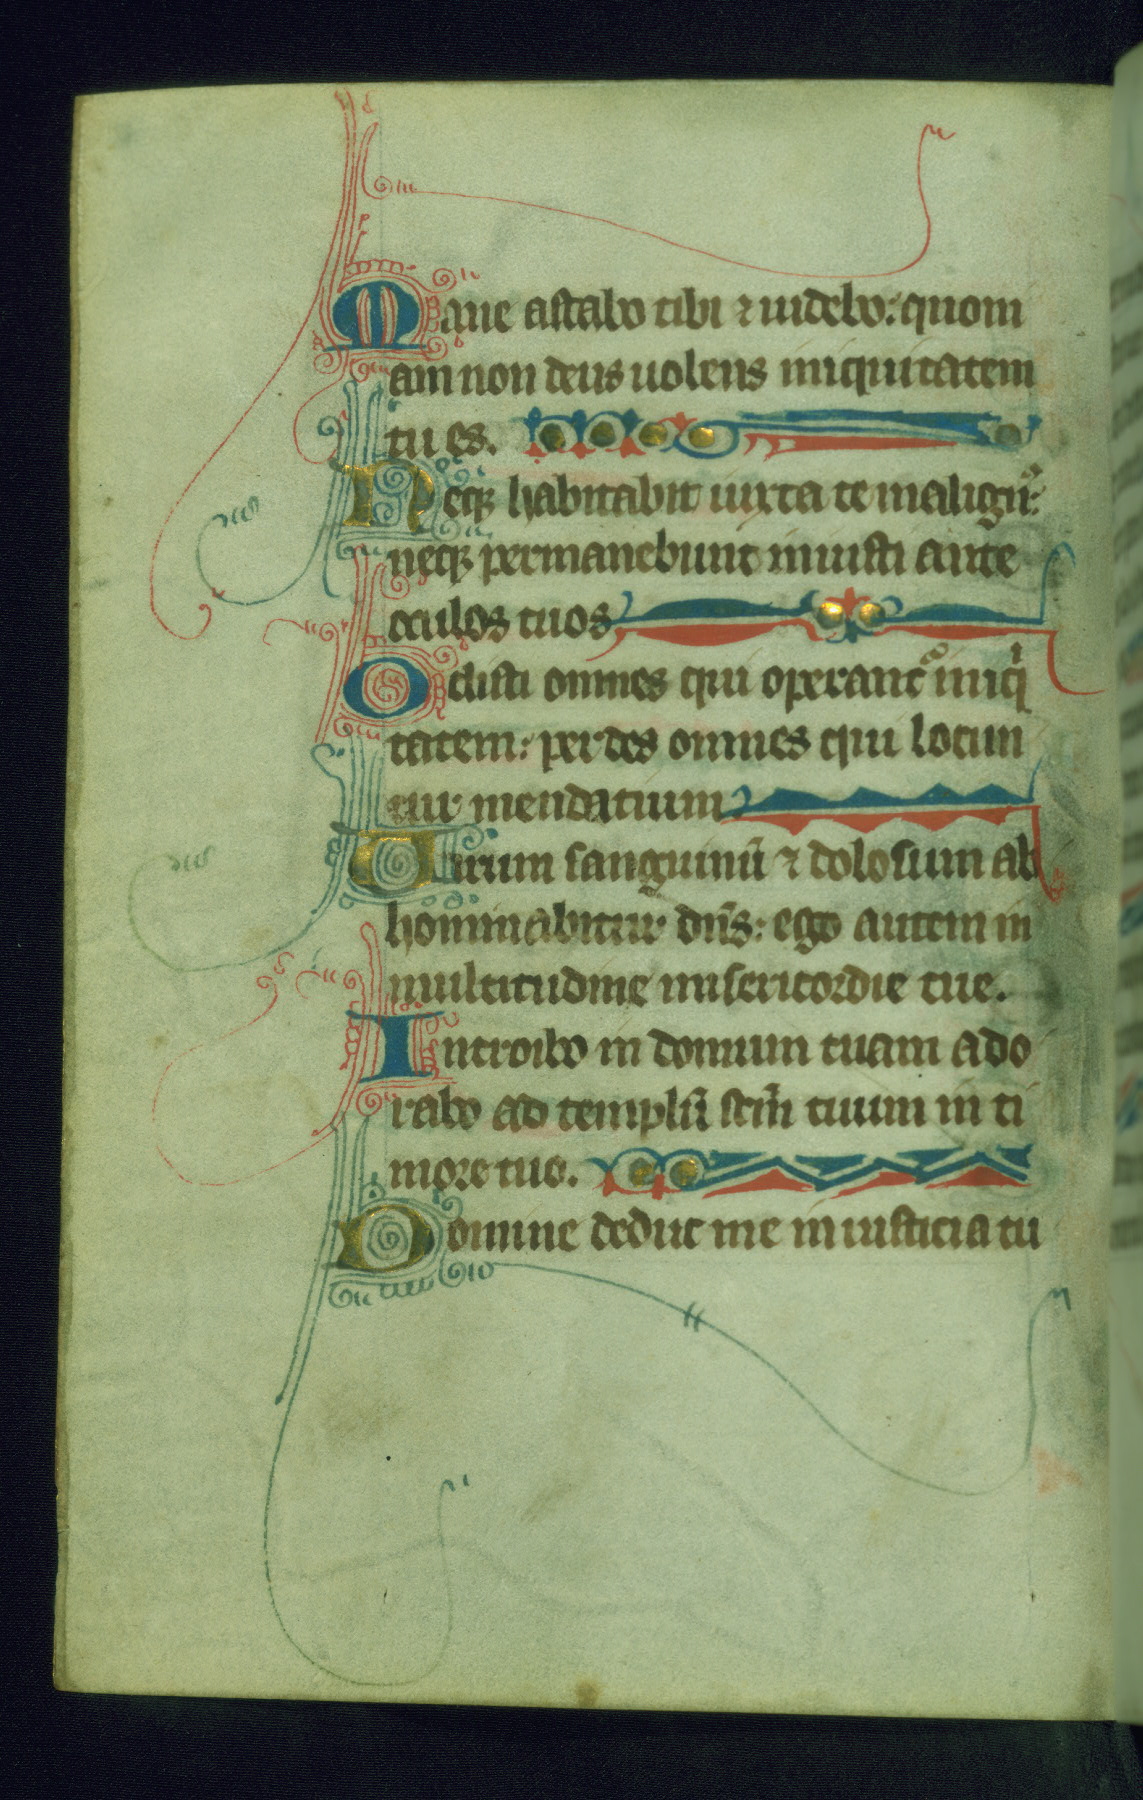 Mane astabo tibi ⁊ uidebo: quoni
am non deus uolens iniquitatem
tu es.
Neqꝫ habitabit iuxta te malignꝰ:
neqꝫ permanebunt iniusti ante
oculos tuos
Odisti omnes qui operantᷣ iniqͥ
tatem: perdes omnes qui locun
tur mendatium
Uirum sanguinū ⁊ dolosum ab
hominabitur dn̄s: ego autem in
multitudine misericordie tue.
Introibo in domum tuam ado
rabo ad templū sc̄m tuum in ti
more tuo.
Domine deduc me in iusticia tu